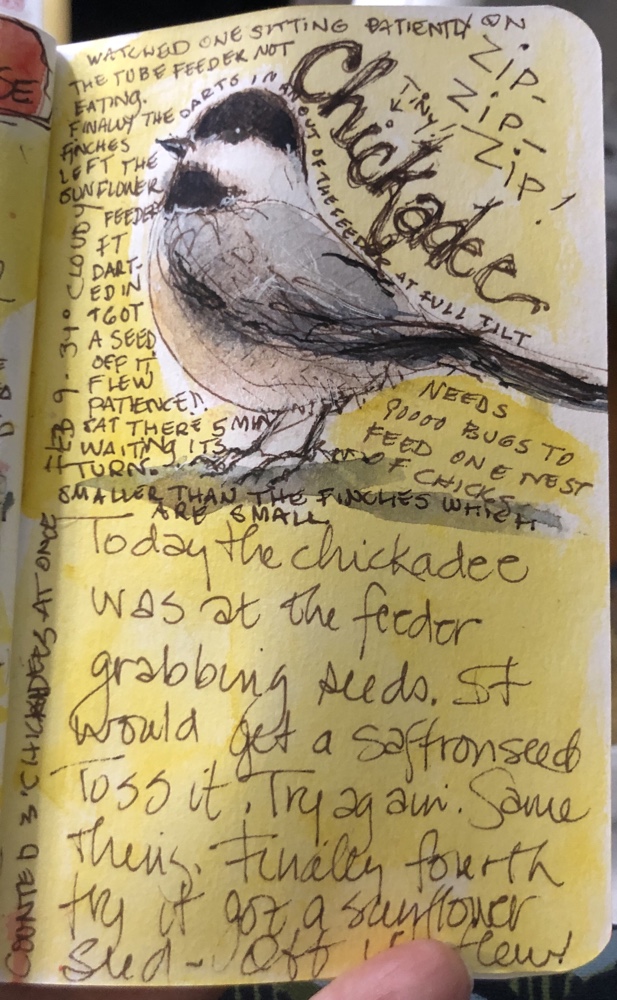 SE
WATCHED ONE SITTING PATIENTLY ON
THE TUBE FEEDER NOT
EATING.
FINALLY THE
FINCHES
LEFT THE
SUNFLOWER
FEEDER
IT
DART-
ED IN
+ GOT
A SEED
OFF IT
FLEW
PATIENCE!!
SAT THERE 5 MIN
WAITING ITS
TURN.
SMALLER THAN THE FINCHES WHICH
ARE SMALL
DARTS IN AN OUT OF THE FEEDER AT FULL TILT
Chickadee
TINY!
ZIP-
ZIP-
ZIP!
NEEDS
9000 BUGS TO
FEED ONE NEST
OF CHICKS
FEB 9 - 34° CLOUDY
COUNTED 3 CHICKADEES AT ONCE
Today the chickadee
was at the feeder
grabbing seeds. It
would get a saffronseed
Toss it. Try again. Same
thing. Finally fourth
try it got a sunflower
seed - Off it flew!